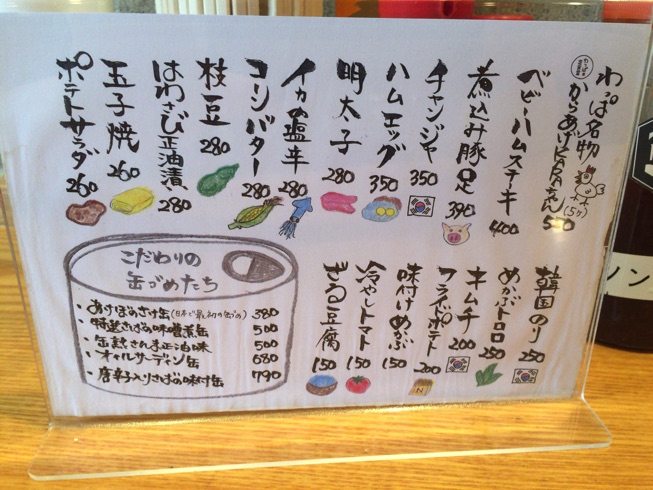 わっぱ名物
からあげBABAちゃん
(5ヶ)
500
ベビーハムステーキ
400
煮込み豚足
390
チャンジャ
350
ハムエッグ
350
明太子
280
イカの塩辛
280
コーンバター
280
枝豆
280
はわさび正油漬
280
玉子焼
260
ポテトサラダ
260
韓国のり
250
めかぶトロロ
250
キムチ
200
フライドポテト
200
味付けめかぶ
150
冷やしトマト
150
ざる豆腐
150
こだわりの
缶づめたち
・あけぼのさけ缶(日本で最初の缶づめ) 380
・特選さばの味噌煮缶 500
・缶熟さんま正油味 500
・オイルサーディン缶 680
・唐辛子入りさばの味付缶 790
N
ノン